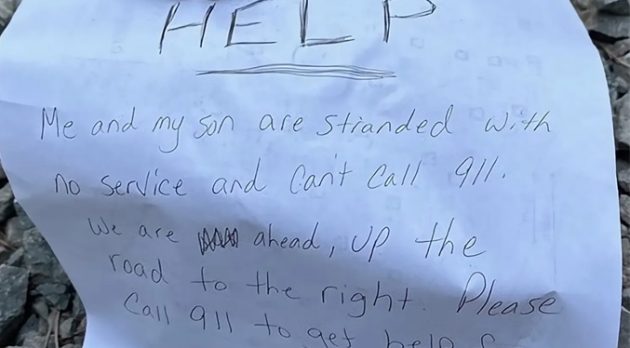 HELP
Me and my son are stranded with
no service and Can't Call 911.
We are ahead, up the
road to the right. Please
Call 911 to get help